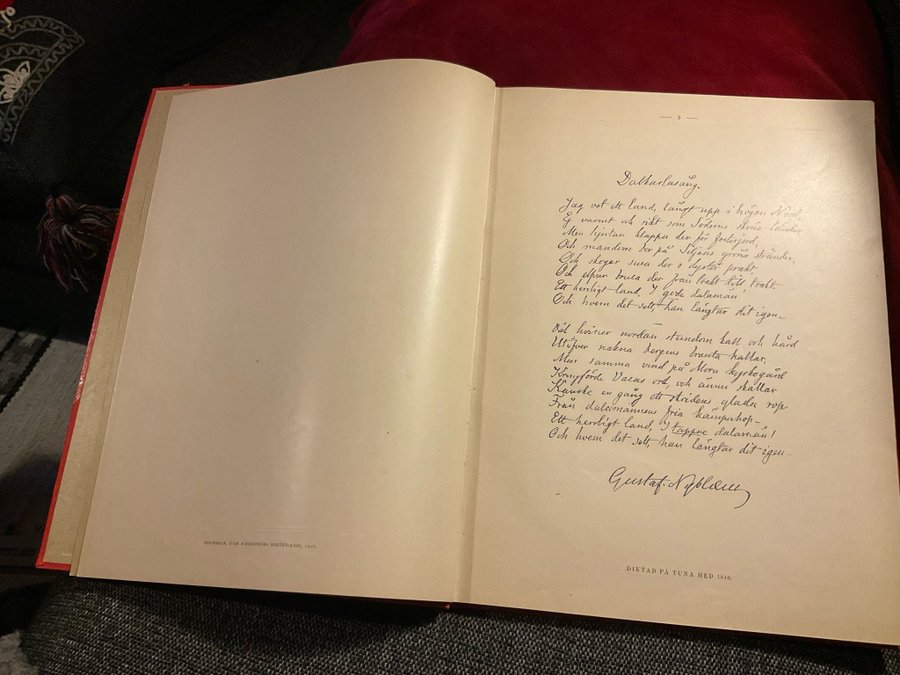 STOCKHOLM, IVAR HÆGGSTRÖMS BOKTRYCKERI, 1897.
— 3 —
Dalkarlasång.
Jag vet ett land, långt upp i högan Nord,
Ej varmt och rikt som Söderns sköna länder,
Men hjertan klappa der för fosterjord,
Och mandom bor på Siljans gröna stränder,
Och skogar susa der i dyster prakt
Och elfvar brusa der från trakt till trakt.
Ett herrligt land, I gode dalamän
Och hvem det sett, han längtar dit igen –
Väl hviner nordan stundom kall och hård
Utöfver nakna bergens branta hallar,
Men samma vind på Mora kyrkogård
Kringförde Vasas ord, och ännu skallar
Kanske en gång ett stridens glada rop
Från dalamännens fria kämpahop –
Ett herrligt land, I tappre dalamän!
Och hvem det sett, han längtar dit igen –
Gustaf Nyblæus
DIKTAD PÅ TUNA HED 1846.